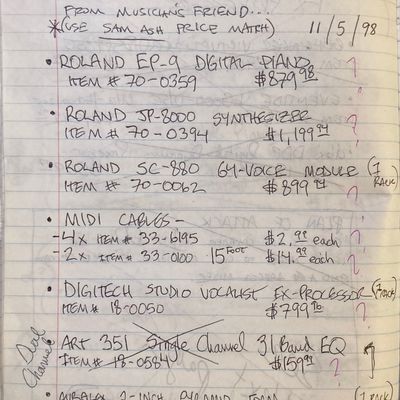 FROM MUSICIAN'S FRIEND...
*(USE SAM ASH PRICE MATCH) 11/5/98
• ROLAND EP-9 DIGITAL PIANO
ITEM # 70-0359 $879.98 ?
• ROLAND JP-8000 SYNTHESIZER
ITEM # 70-0394 $1,199.99 ?
• ROLAND SC-880 64-VOICE MODULE (1 RACK)
ITEM # 70-0062 $899.99 ?
• MIDI CABLES-
-4x ITEM # 33-6195 $2.99 each ?
-2x ITEM # 33-0100 15 FOOT $14.99 each ?
• DIGITECH STUDIO VOCALIST EX-PROCESSOR
ITEM # 18-0050 $799.95 ?
Dual Channel
ART 351 Single Channel 31 Band EQ
ITEM # 18-0584 $159.99 ?